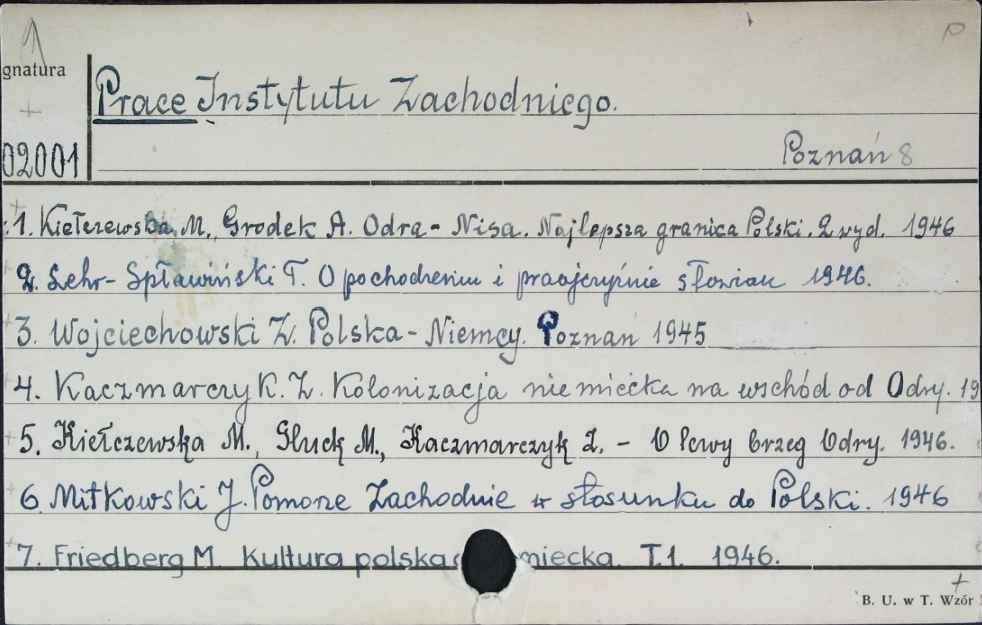 gnatura
Prace Instytutu Zachodniego.
02001
Poznań 8
1. Kiełczewska M., Grodek A. Odra - Nisa. Najlepsza granica Polski. 2 wyd. 1946
2. Lehr-Spławiński T. O pochodzeniu i praojczyźnie słowian 1946.
3. Wojciechowski Z. Polska - Niemcy. Poznań 1945
4. Kaczmarczyk. Z. Kolonizacja niemiecka na wschód od Odry. 19
5. Kiełczewska M., Gluck M., Kaczmarczyk Z. - O lewy brzeg Odry. 1946.
6. Mitkowski J. Pomorze Zachodnie w stosunku do Polski. 1946
7. Friedberg M. Kultura polska miecka. T.1. 1946.
B. U. w T. Wzór